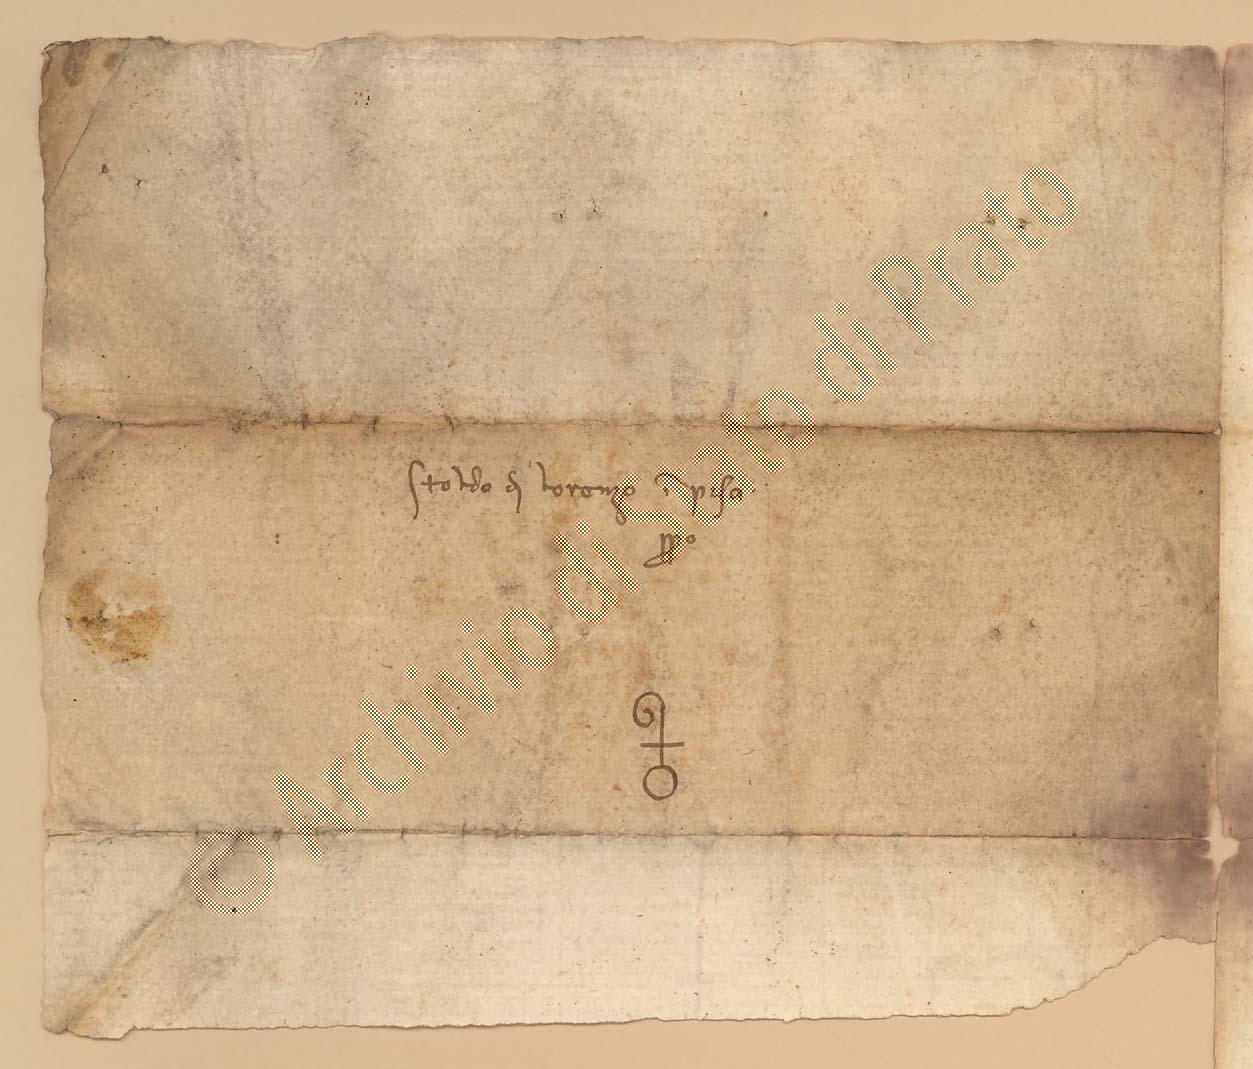 Stoldo di Lorenzo in pisa
pp̊
© Archivio di Stato di Prato